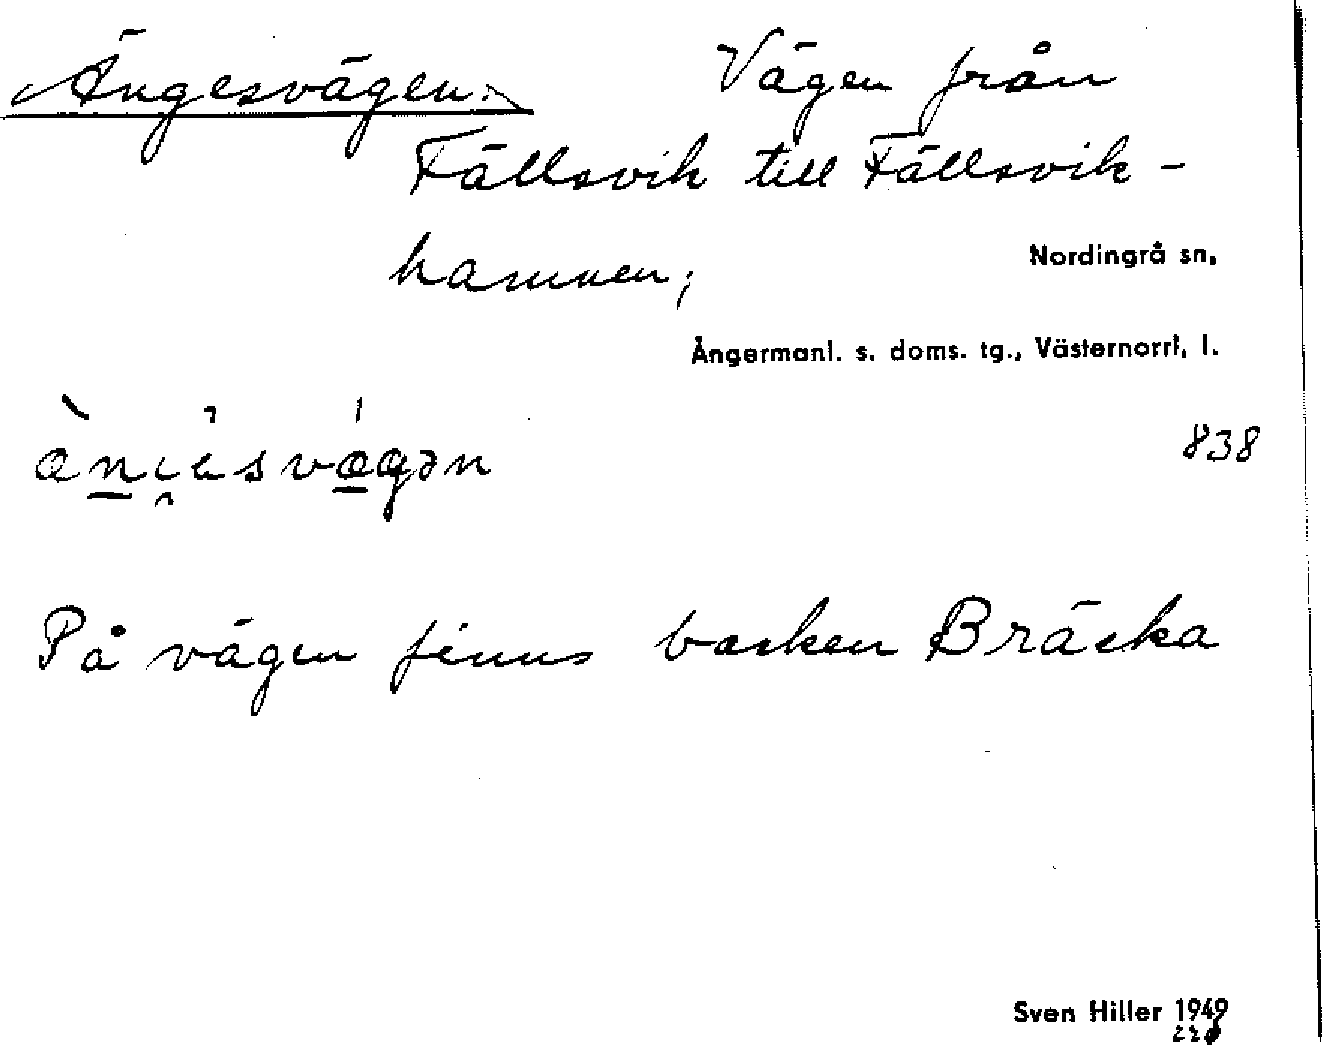 Ängesvägen. Vägen från
Fällsvik till Fällsvik-
hamnen;
Nordingrå sn.
Ångermanl. s. doms. tg., Västernorrl. l.
838
På vägen finns backen Bräcka
Sven Hiller 1949